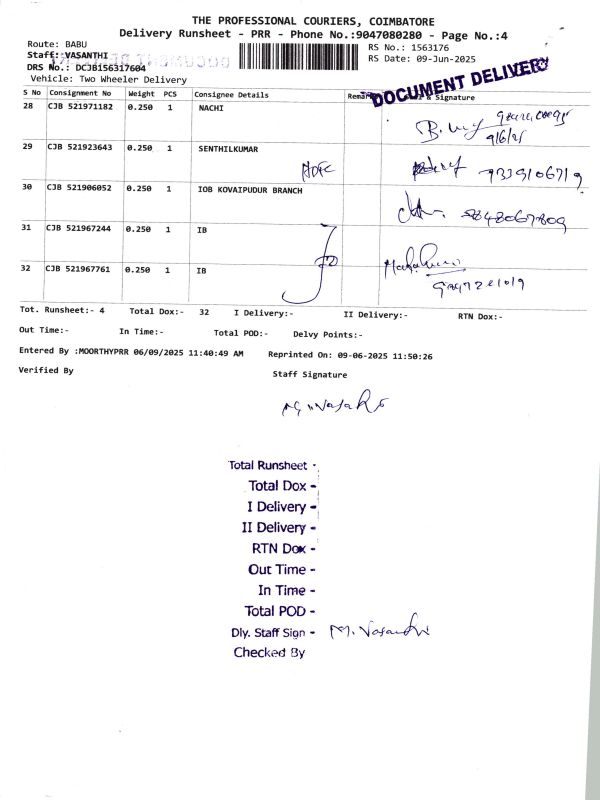 THE PROFESSIONAL COURIERS, COIMBATORE
Delivery Runsheet - PRR - Phone No.:9047080280 - Page No.:4
Route: BABU
Staff: VASANTHI
DRS No.: DCJB156317604
Vehicle: Two Wheeler Delivery
RS No.: 1563176
RS Date: 09-Jun-2025
DOCUMENT DELIVERY
S No Consignment No Weight PCS Consignee Details Remarks & Signature
28 CJB 521971182 0.250 1 NACHI
9/6/25
29 CJB 521923643 0.250 1 SENTHILKUMAR
HDFC
30 CJB 521906052 0.250 1 IOB KOVAIPUDUR BRANCH
31 CJB 521967244 0.250 1 IB
32 CJB 521967761 0.250 1 IB
Tot. Runsheet:- 4 Total Dox:- 32 I Delivery:- II Delivery:- RTN Dox:-
Out Time:- In Time:- Total POD:- Delvy Points:-
Entered By :MOORTHYPRR 06/09/2025 11:40:49 AM Reprinted On: 09-06-2025 11:50:26
Verified By Staff Signature
Total Runsheet -
Total Dox -
I Delivery -
II Delivery -
RTN Dox -
Out Time -
In Time -
Total POD -
Dly. Staff Sign - M. Vasanthi
Checked By